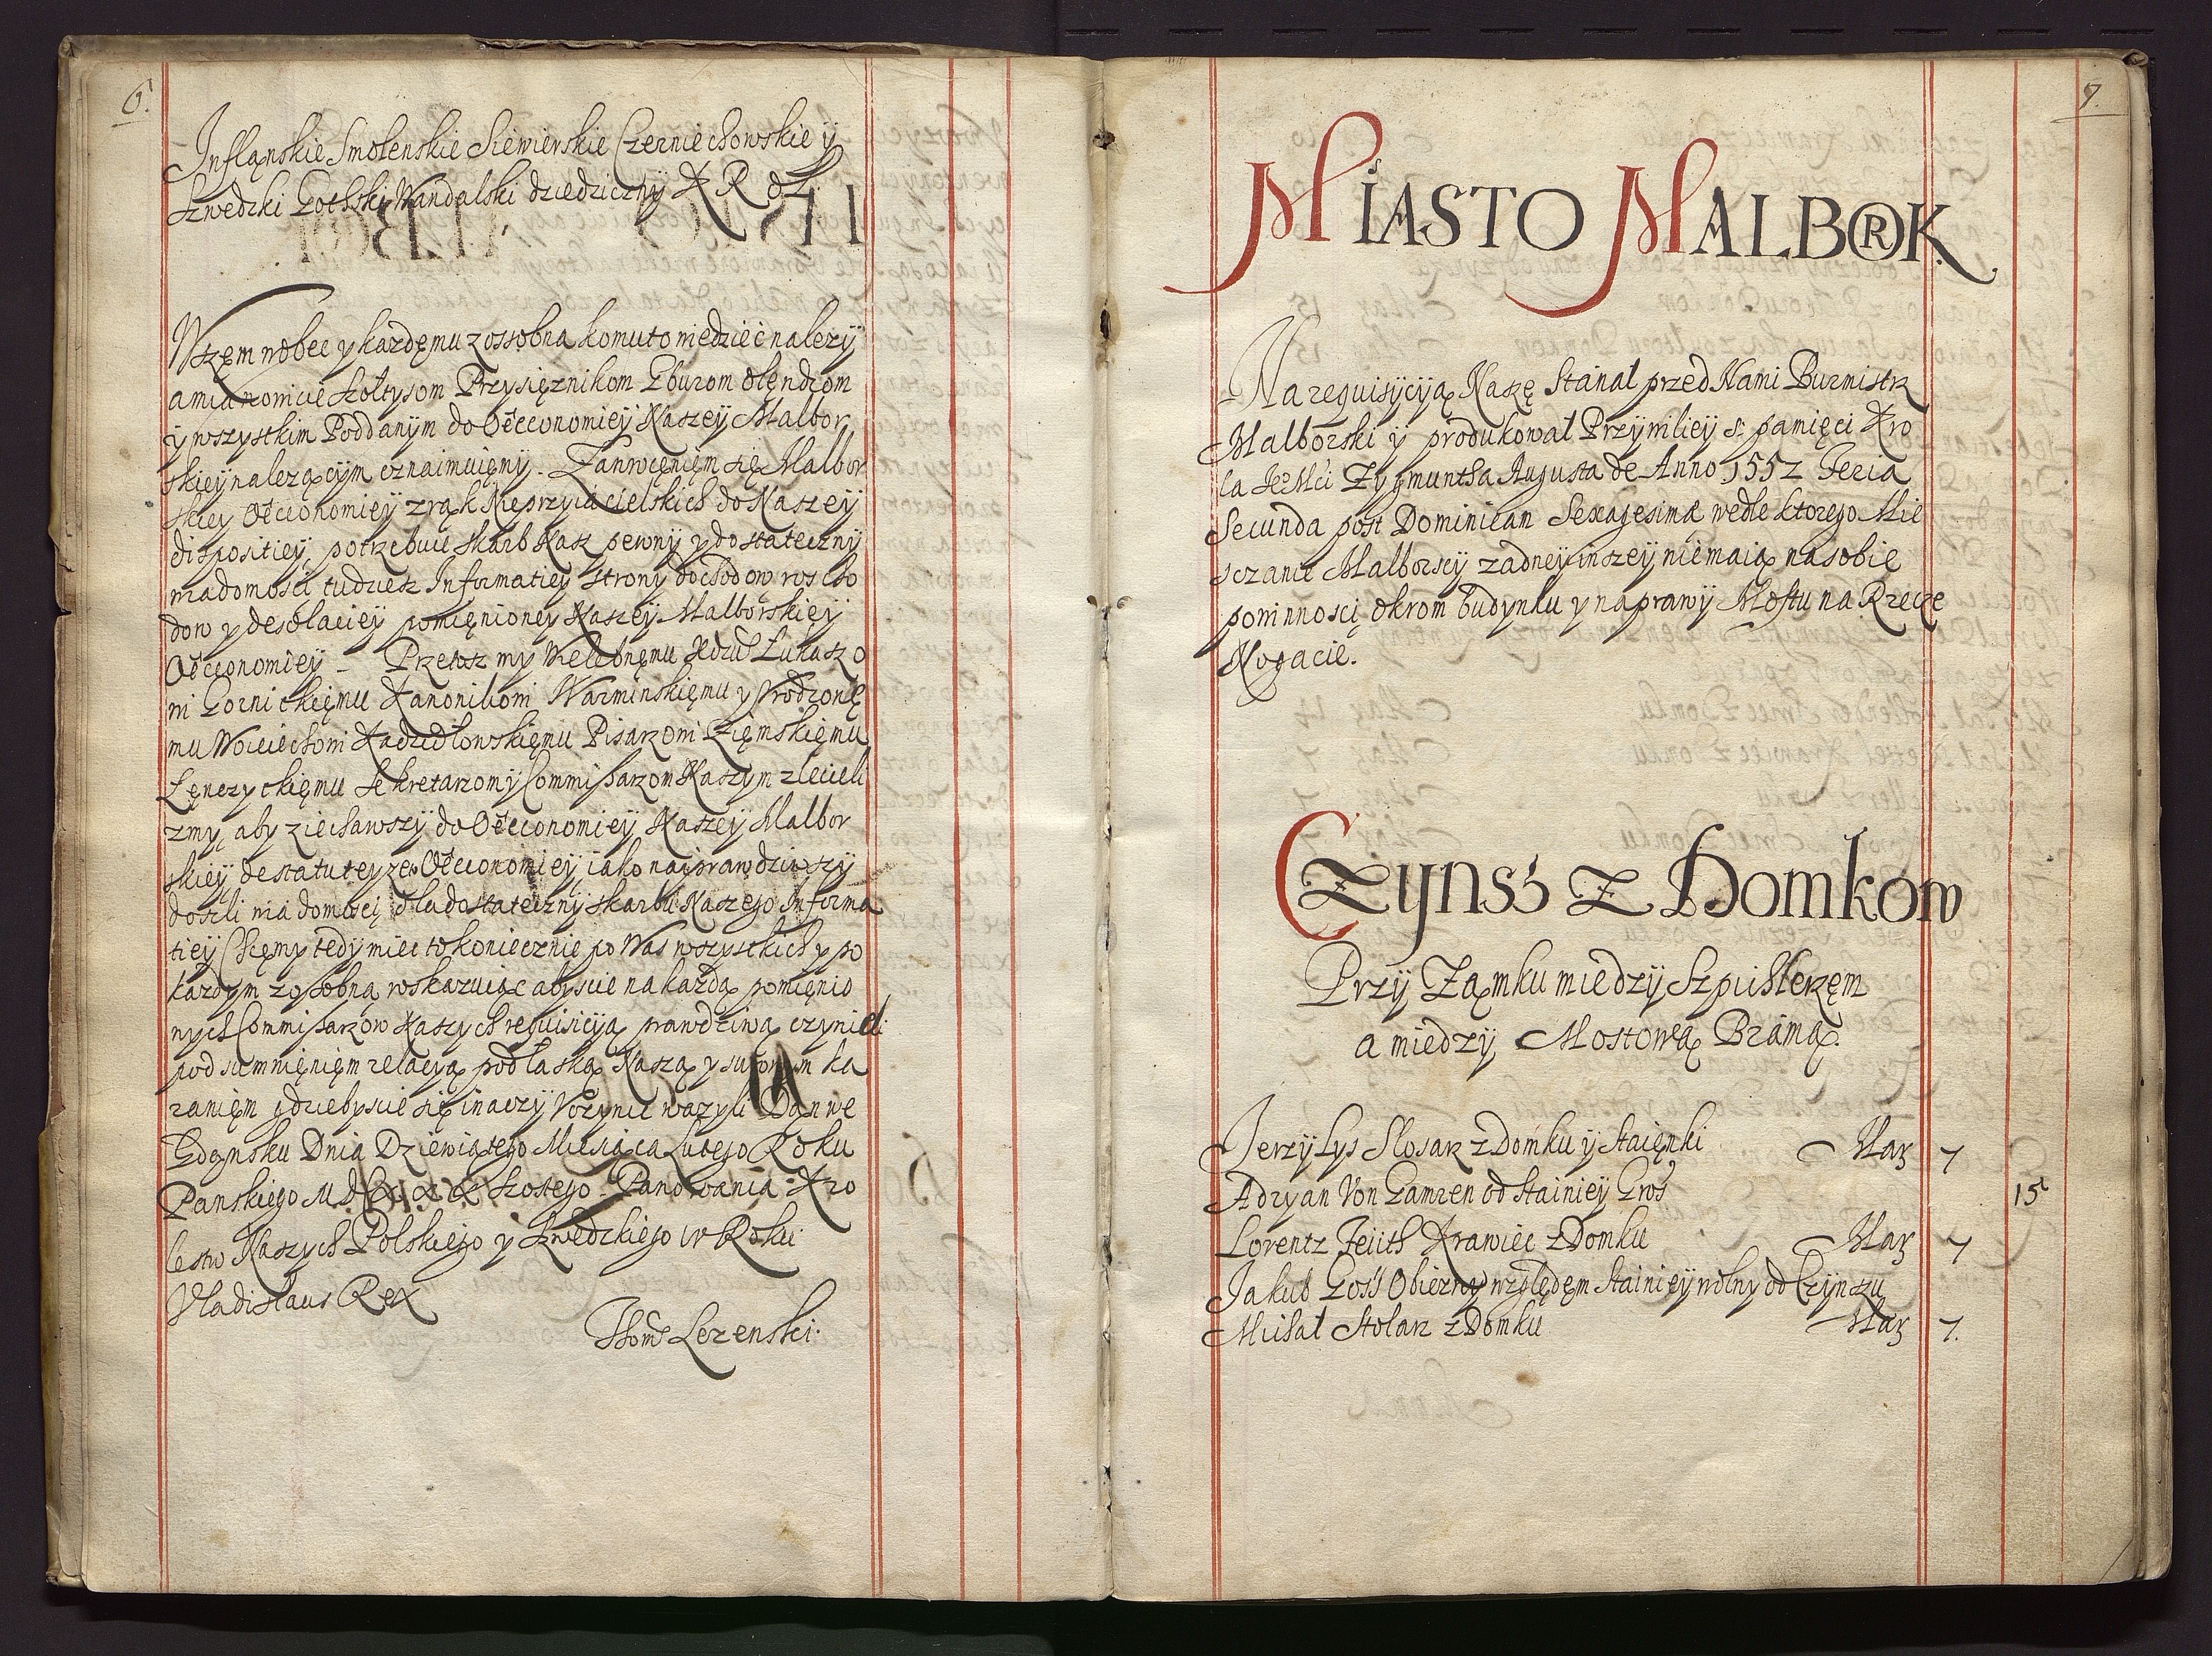 6.
Infląnskie Smolenskie Siewierskie Czerniechowskie ÿ
Szwedzki Gothski Wandalski dziedziczny K R ol.
Wszęm wobec y każdęmu zossobna komu to wiedziec nalezÿ
a mianowicie Szołtysom Przysięznikom Gburom Olęndrom
ÿ wszystkim Poddanÿm do Oëconomieÿ Naszeÿ Malbor
skieÿ nalezącÿm oznaimuięmÿ. Zanwręnięm się Malbor
skieÿ Oëconomieÿ z rąk Nieprzyiacielskich do Naszeÿ
dispositieÿ, potrzebuie skarb Nasz pewnÿ y dostatecznÿ
wiadomosci tudziesz Informatieÿ strony dochodow roscho
dow y desolacieÿ pomięnioneÿ Naszeÿ Malborskieÿ
Oëconomieÿ Przetosz my Wielebnęmu Xdzu Łukaszo
wi Gornickięmu Kanonikowi Warminskięmu y Vrodzonę
mu Woiciechowi Kadzidłowskięmu Pisarzowi Zięmskięmu
Lęnczyckięmu Sekretarzowi Commissarzom Naszym zlecieli
zmÿ, aby ziechawszÿ do Oëconomieÿ Naszeÿ Malbor
skieÿ de statu teyze Oëconomieÿ iako naiprawdziwszÿ
doszli wiadomosci dla dostatecznÿ skarbu Naszego Informa
tieÿ Chcęmy tedÿ miec to koniecznie po Was wszystkich y po
kazdÿm zosobna roskazuiąc abyscie na kazdą pomięnio
nych Commissarzow Naszych requisicÿą prawdziwą czynieli
pod sumnięnięm relacÿą pod łaską Naszą y surowym ka
ranięm gdziebyscie się inaczÿ Vczynic wazyli Dąn we
Gdąnsku Dnia Dziewiątego Miesiąca Lutego Roku
Panskiego M. D. C. XXX Szostego. Panowania Kro
lestw Naszych Polskiego y Szwedzkiego IV Roku
Vladislaus Rex
Thoms Lezenski.
7.
MIASTO MALBORK
Na requisÿcÿą Naszę Stanał przed Nami Burmistrz
Malborski ÿ produkował Przÿwilieÿ S. pamięci Kro
la JeMci Zygmuntha Augusta de Anno 1552 Feria
Secunda post Dominicam Sexagesimæ wedle ktorego Mie
sczanie Malborscÿ zadneÿ inszeÿ nie maią na sobie
powinnosci okrom budynku y naprawÿ Mostu na Rzece
Nogacie.
CZynsz z Domkow
Przÿ Ząmku miedzÿ Szpichlerzęm
a miedzÿ Mostową Brámą.
Jerzÿ Lys Slosarz z Domku ÿ Staięnki Marg 7
Adryan Von Gamren od Stainieÿ Gros 15
Lorentz Feiith Krawiec z Domku Marg 7
Jakub Goss Obiezny względęm Stainieÿ wolny od Czÿnszu
Michał Stolarz z Domku Marg 7.